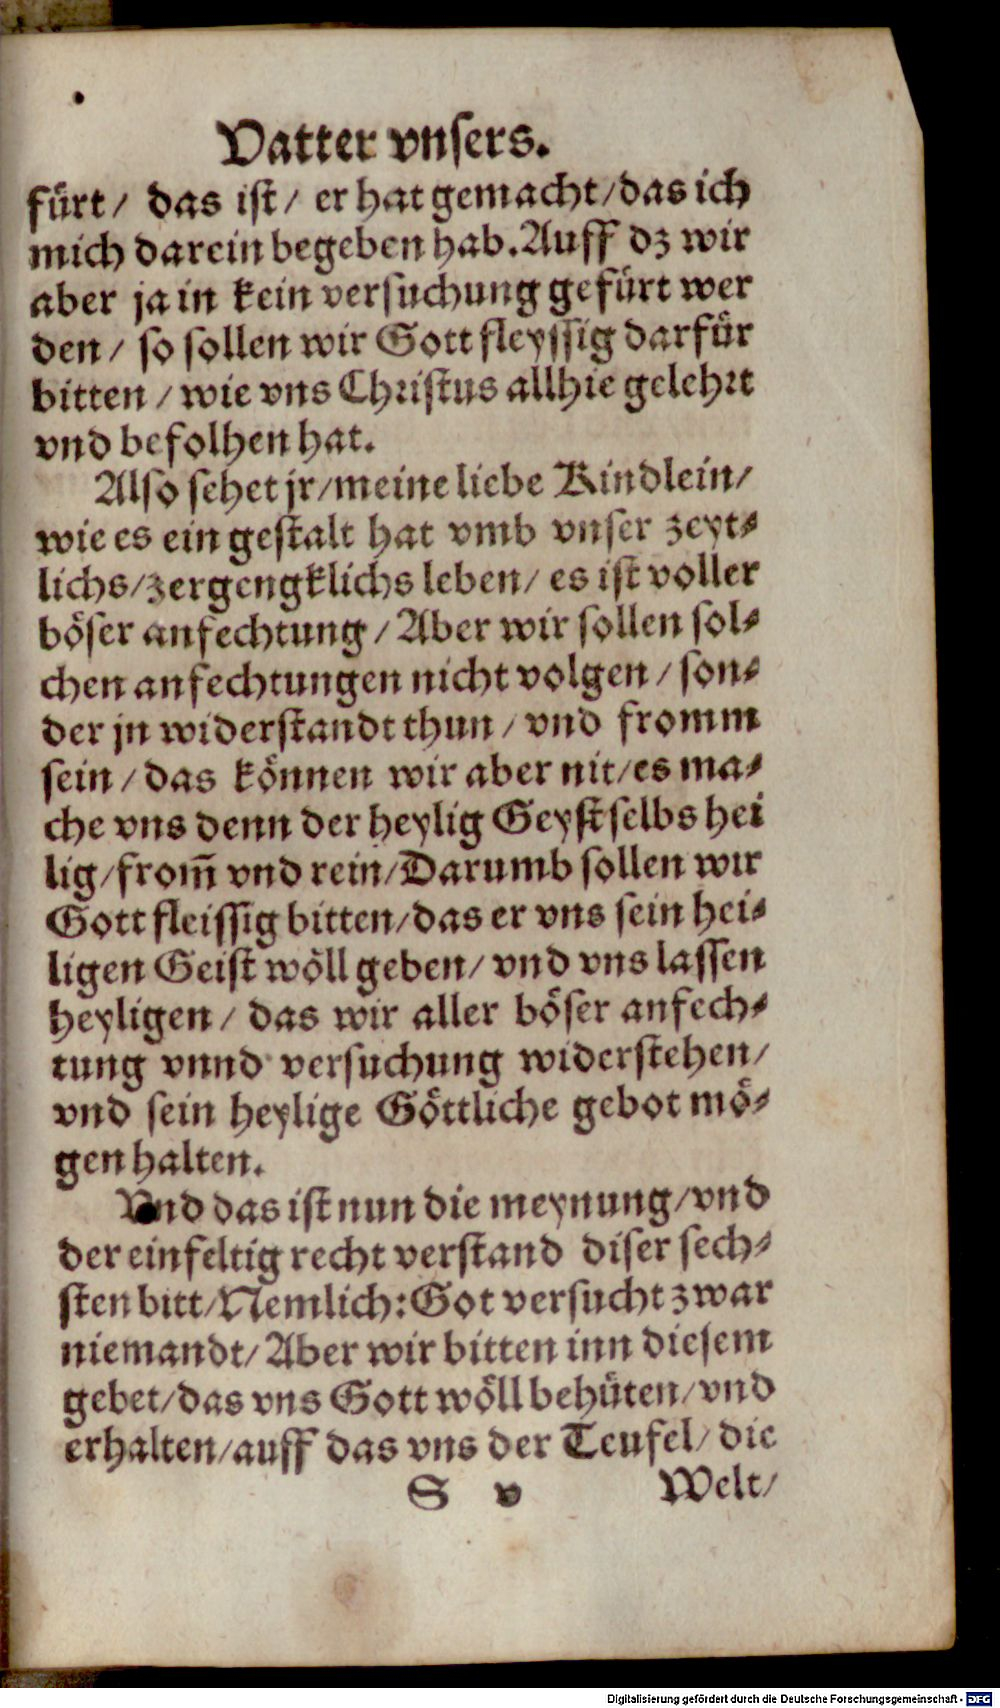 Vatter vnsers.
fürt/ das ist/ er hat gemacht/das ich
mich darein begeben hab. Auff dz wir
aber ja in kein versuchung gefürt wer
den/ so sollen wir Gott fleyssig darfür
bitten/ wie vns Christus allhie gelehrt
vnd befolhen hat.
Also sehet jr/meine liebe Kindlein/
wie es ein gestalt hat vmb vnser zeyt-
lichs/zergengklichs leben/ es ist voller
böser anfechtung/ Aber wir sollen sol-
chen anfechtungen nicht volgen/ son-
der jn widerstandt thun/ vnd fromm
sein/ das können wir aber nit/es ma-
che vns denn der heylig Geyst selbs hei
lig/from̃ vnd rein/Darumb sollen wir
Gott fleissig bitten/das er vns sein hei-
ligen Geist wöll geben/ vnd vns lassen
heyligen/ das wir aller böser anfech-
tung vnnd versuchung widerstehen/
vnd sein heylige Göttliche gebot mö-
gen halten.
Vnd das ist nun die meynung/vnd
der einfeltig recht verstand diser sech-
sten bitt/Nemlich: Got versucht zwar
niemandt/ Aber wir bitten inn diesem
gebet/das vns Gott wöll behüten/vnd
erhalten/auff das vns der Teufel/ die
S v Welt/
Digitalisierung gefördert durch die Deutsche Forschungsgemeinschaft - DFG